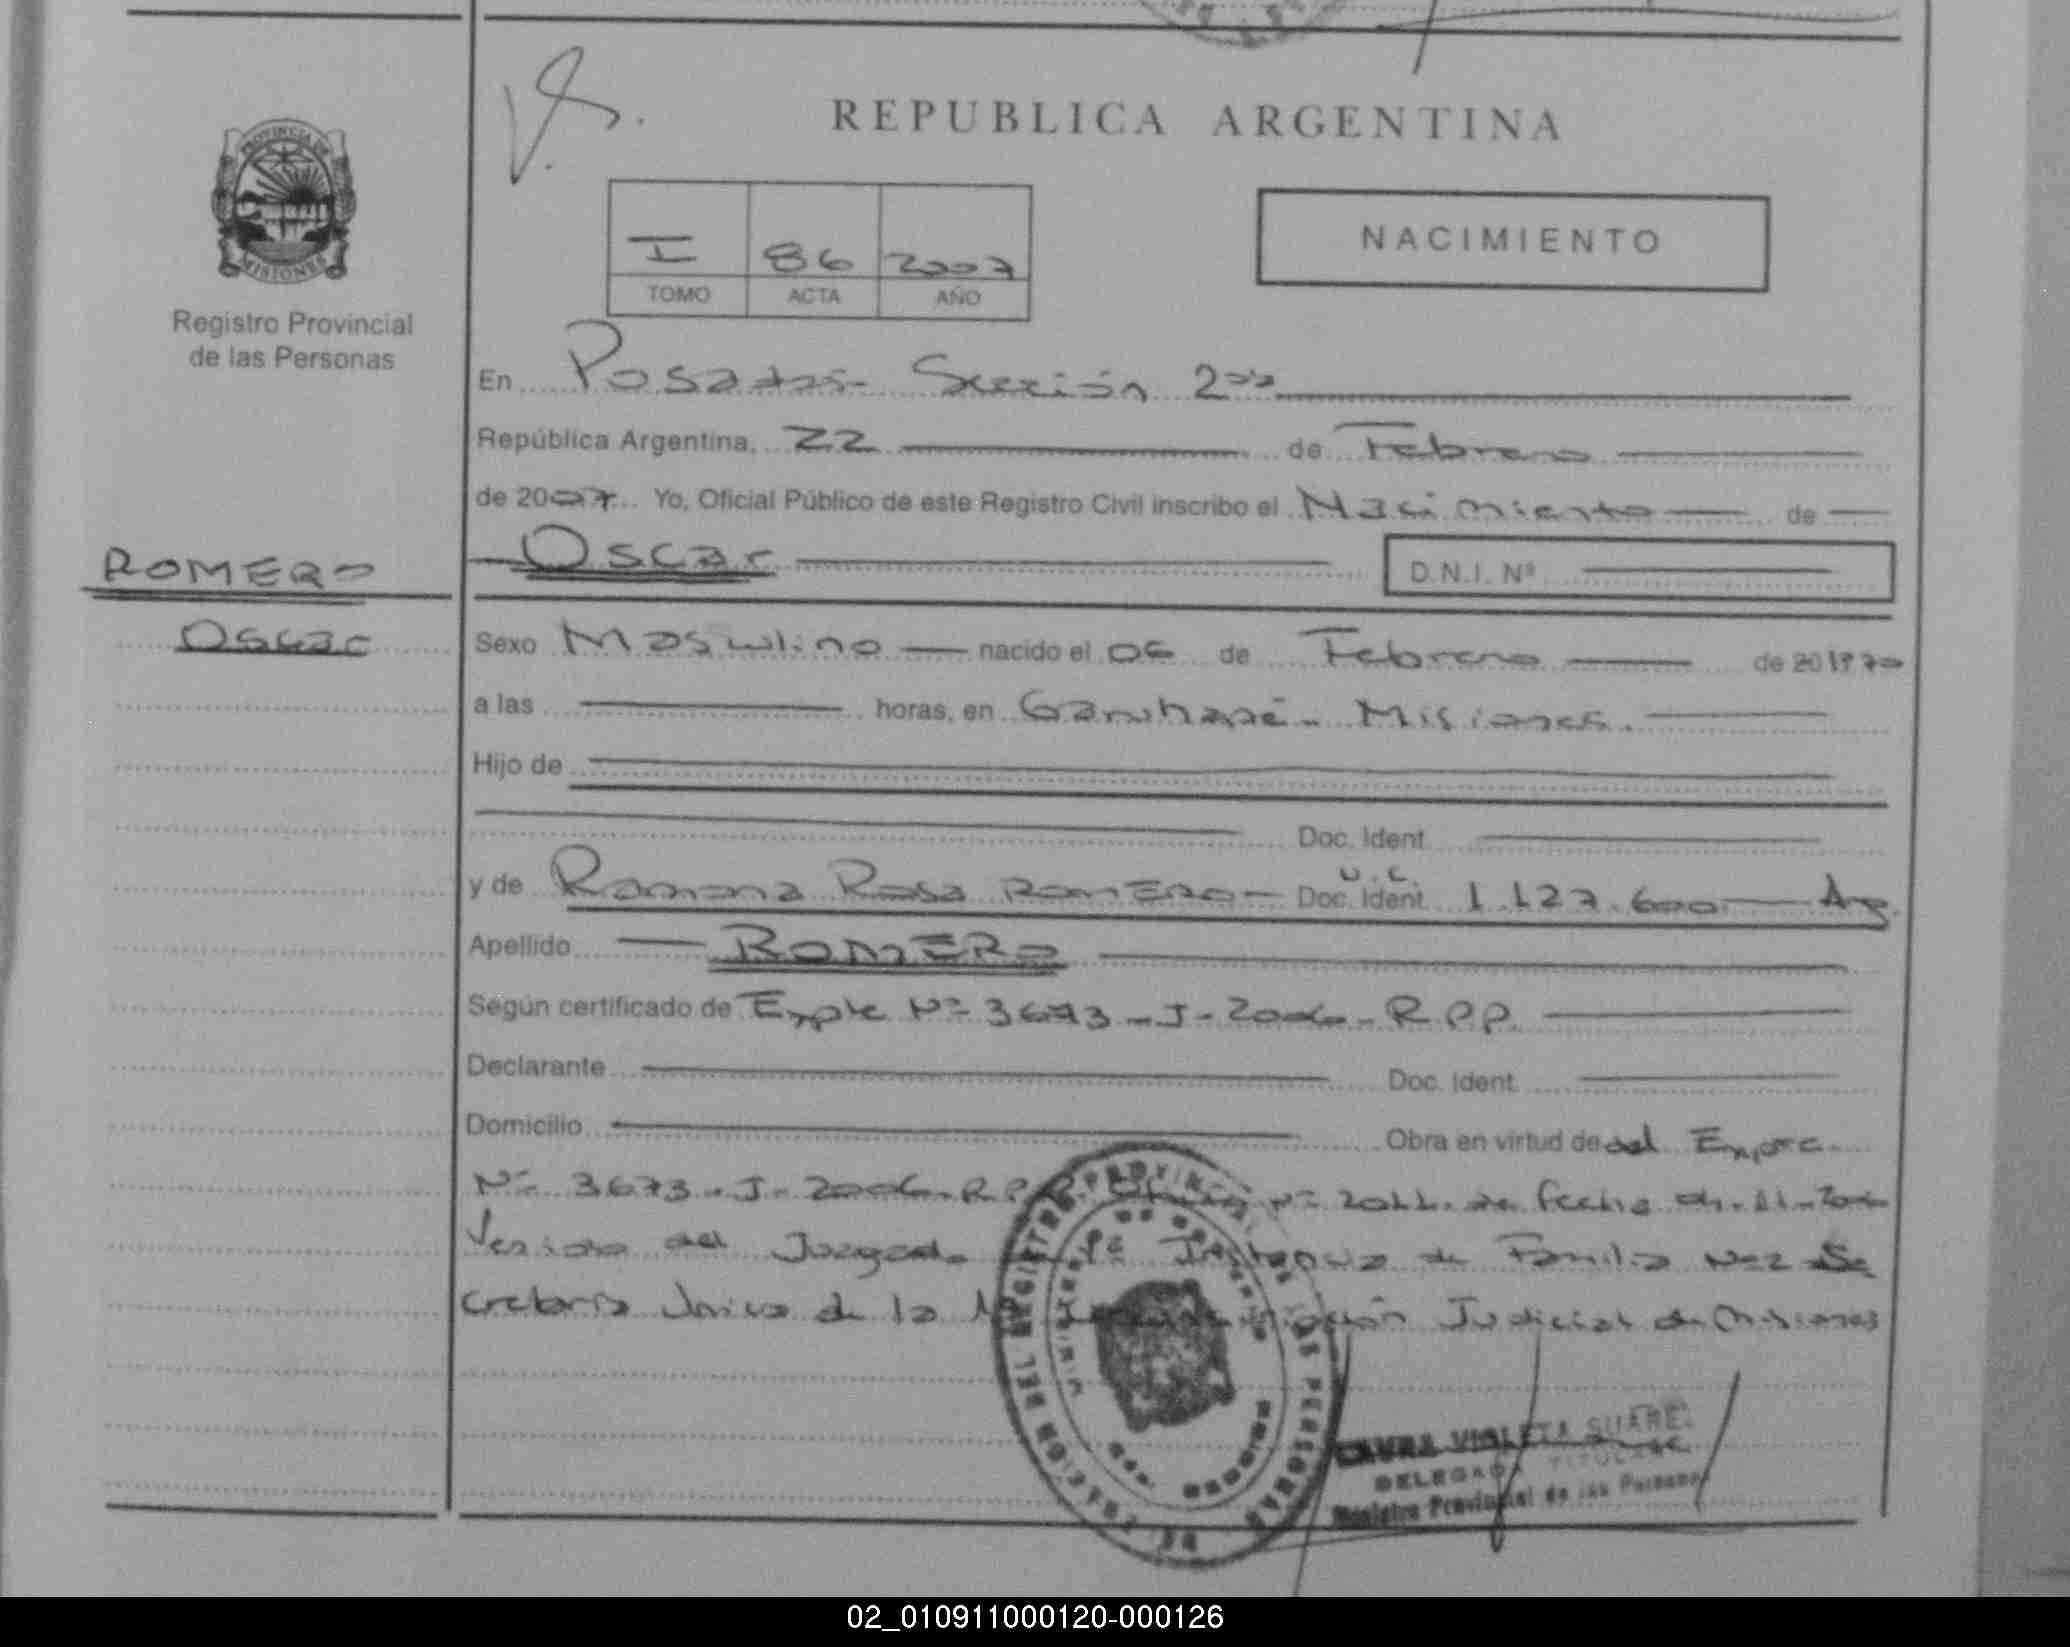 REPUBLICA ARGENTINA
PROVINCIA DE MISIONES
Registro Provincial
de las Personas
I 86 2007
TOMO ACTA AÑO
NACIMIENTO
En Posadas - Sección 2da
República Argentina, 22 de Febrero
de 2007 Yo, Oficial Público de este Registro Civil inscribo el Nacimiento de
ROMERO
Oscar
Oscar D.N.I. Nº
Sexo Masculino nacido el 06 de Febrero de 20 1970
a las horas, en Garuhapé - Misiones.
Hijo de
Doc. Ident.
y de Ramona Rosa ROMERO - Doc. Ident. 1.127.600 Arg.
Apellido ROMERO
Según certificado de Expte Nº 3673 - J - 2006 - R.P.P.
Declarante Doc. Ident.
Domicilio Obra en virtud de del Expte.
Nº 3673 - J - 2006 - R.P.P. Nº 2011 de fecha 11 - 2006
Venido del Juzgado 1ª Instancia de Familia Nº 2 Se
cretaria Unica de la Judicial de Misiones
LAURA VIOLETA SUAREZ
DELEGADA TITULAR
Registro Provincial de las Personas
02_010911000120-000126